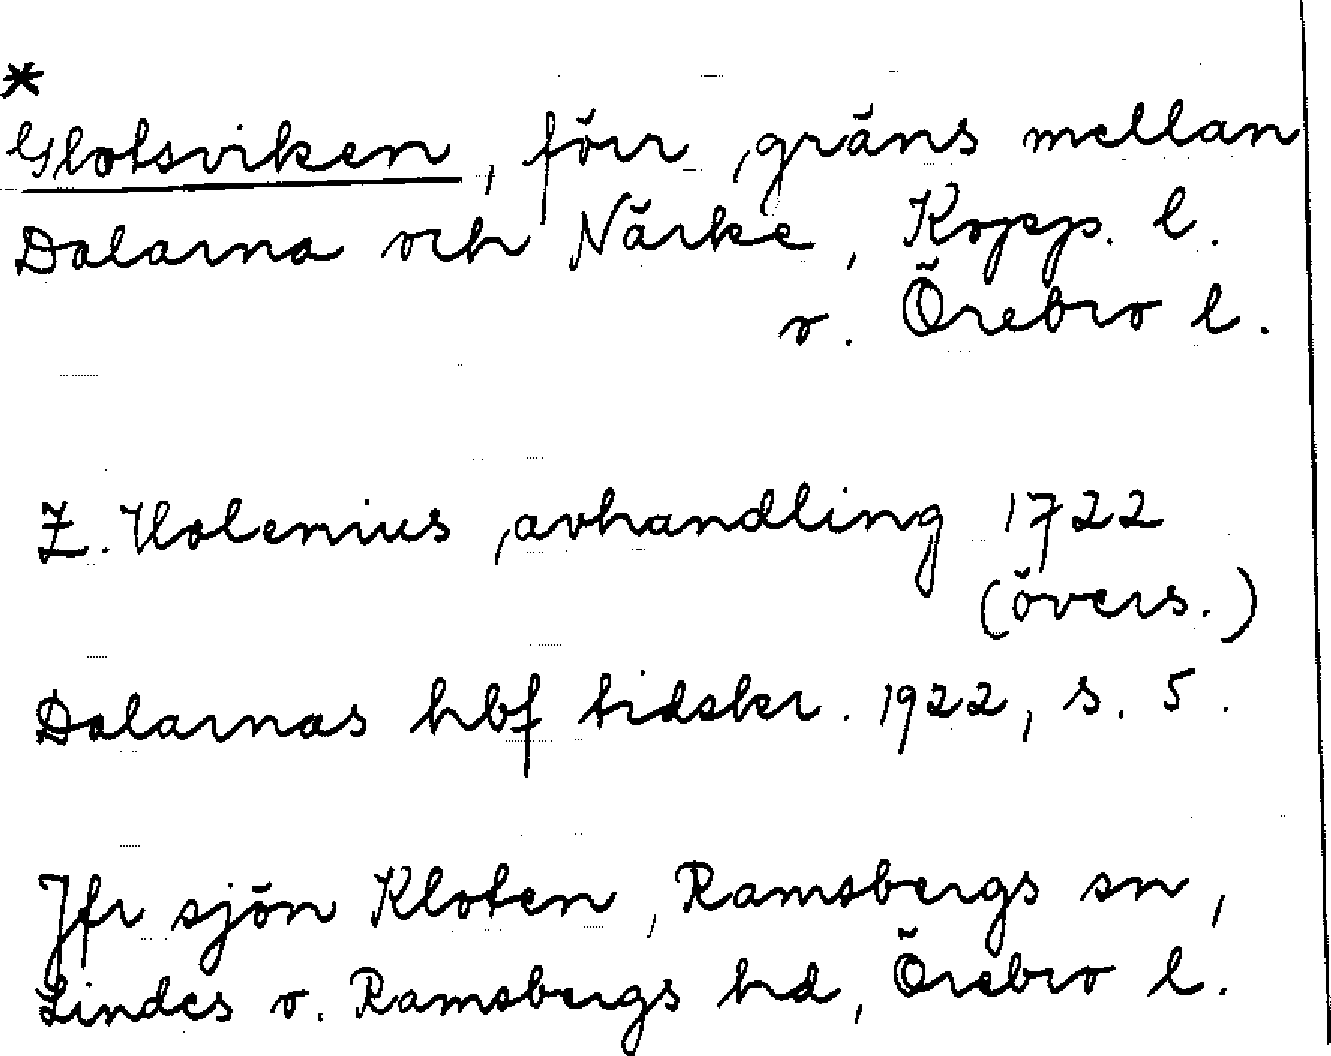 *
Glotsviken, förr gräns mellan
Dalarna och Närke, Kopp. l.
o. Örebro l.
Z. Holenius avhandling 1722
(övers.)
Dalarnas hbf tidskr. 1922, s. 5.
Jfr sjön Kloten, Ramsbergs sn,
Lindes o. Ramsbergs hd, Örebro l.